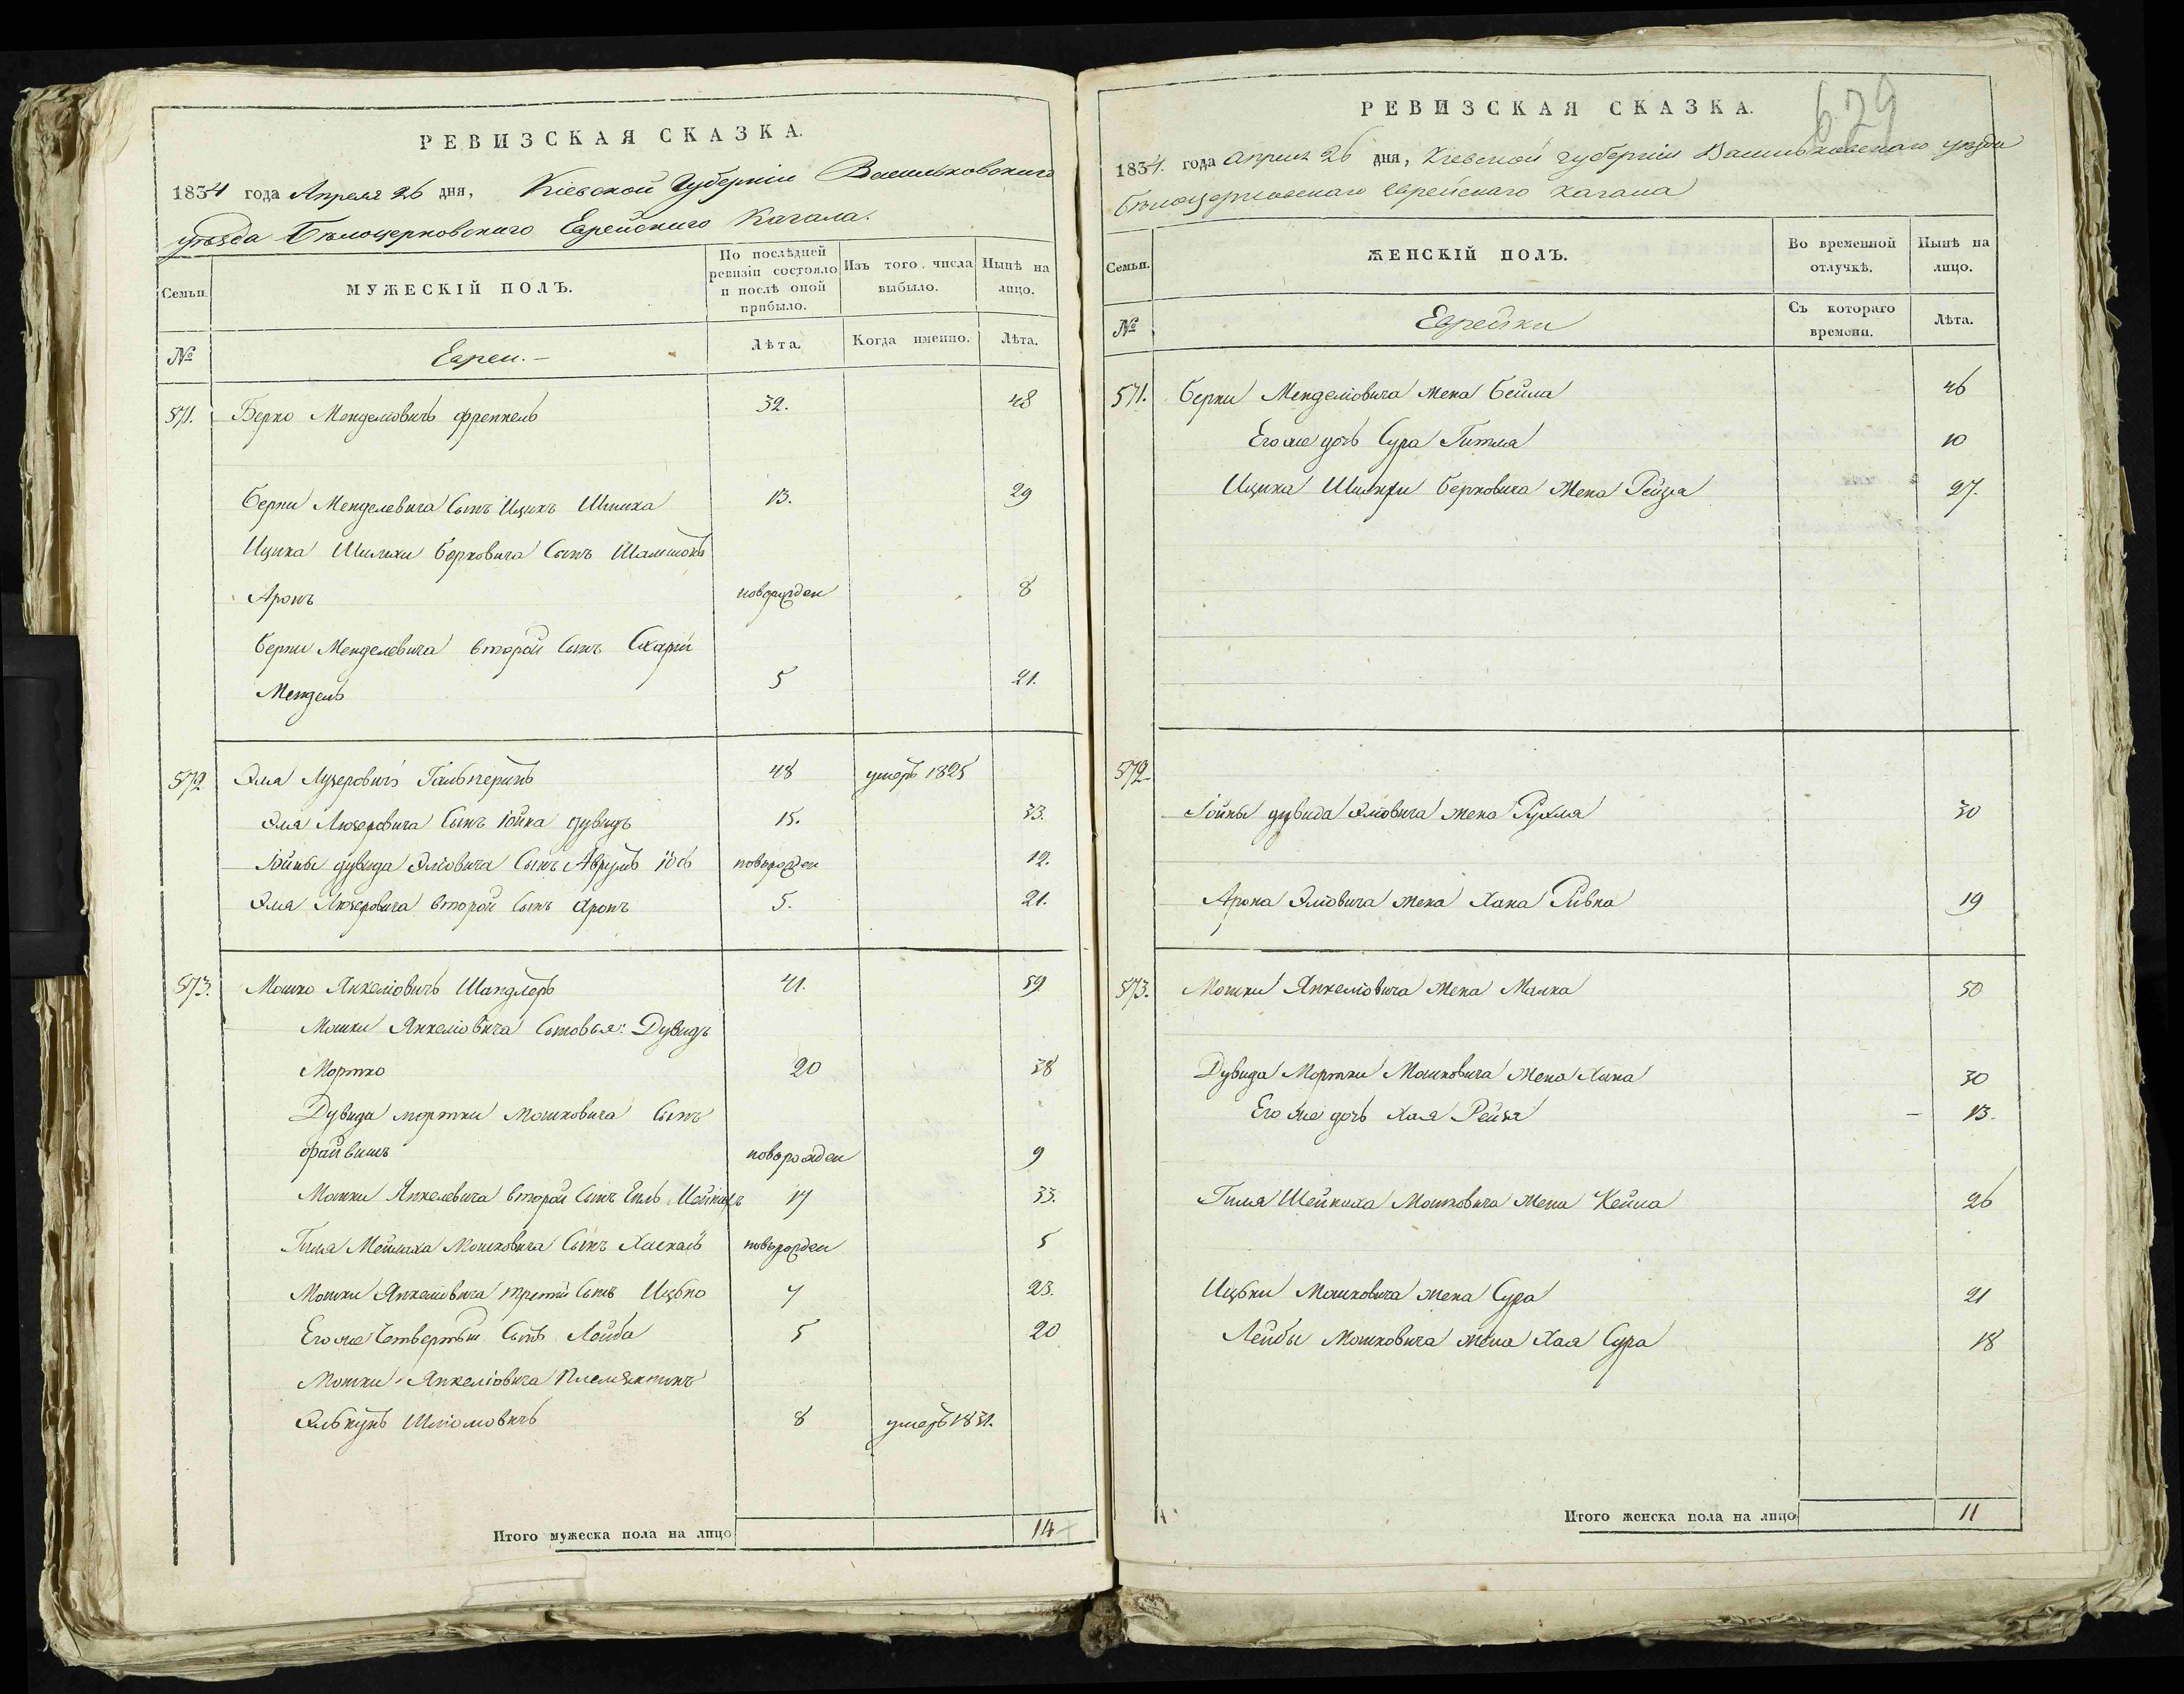 РЕВИЗСКАЯ СКАЗКА.
1834 года Апреля 26 дня, Кіевской Губерніи Васильковскаго
уѣзда Бѣлоцерковскаго Еврейскаго Кагала.
Семьи.
МУЖЕСКІЙ ПОЛЪ.
По послѣдней ревизіи состояло и послѣ оной прибыло.
Изъ того числа выбыло.
Нынѣ на лицо.
№
Евреи.
Лѣта.
Когда именно.
Лѣта.
571. Берко Менделіовичъ Френкель 32. 48
Берки Менделевича Сынъ Ицикъ Шмиха 13. 29
Ицика Берковича Сынъ Шамшонъ
Аронъ новорожден 8
Берки Менделевича второй Сынъ
Мендель 5 21.
572 Эля Лузеровичъ Гальперинъ 48 умеръ 1825
Эля Люзеровича Сынъ Іойна Дувидъ 15. 33.
Іойны Дувида Эліовича Сынъ Аврумъ Іосъ новорожден 12.
Эля Люзеровича второй Сынъ Аронъ 5. 21.
573. Мошко Янкеліовичъ Шандлеръ 41. 59
Мошки Янкеліовича Сыновья: Дувидъ
Мортко 20 38
Дувида Мортки Мошковича Сынъ
Файвишъ новорожден 9
Мошки Янкелевича второй Сынъ 17 33.
Гиля Мошковича Сынъ Хаскель новорожден 5
Мошки Янкеліовича третій Сынъ Ицько 7 23.
Егоже Четвертый Сынъ Лейба 5 20
Мошки Янкеліовича Племянникъ
Элькунъ Шліомовичъ 8 умеръ 1831.
Итого мужеска пола на лицо 14
629
РЕВИЗСКАЯ СКАЗКА.
1834. года Апреля 26 дня, Кіевской губерніи Васильковскаго уѣзда
Бѣлоцерковскаго Еврейскаго Кагала
Семьи.
ЖЕНСКІЙ ПОЛЪ.
Во временной отлучкѣ.
Нынѣ на лицо.
№
Еврейки
Съ котораго времени.
Лѣта.
571. Берки Менделіовича жена Бейла 46
Егоже дочь Сура Гитля 10
Ицика Берковича Жена Рейза 27.
572
Іойны Дувида Эліовича жена Рухля 30
Арона Эліовича жена Хана Ривка 19
573. Мошки Янкеліовича жена Малка 50
Дувида Мортки Мошковича жена Хана 30
Его же дочь Хая Рейза 13.
Гиля Мошковича жена Кейла 26
Ицьки Мошковича жена Сура 21
Лейбы Мошковича жена Хая Сура 18
Итого женска пола на лицо 11